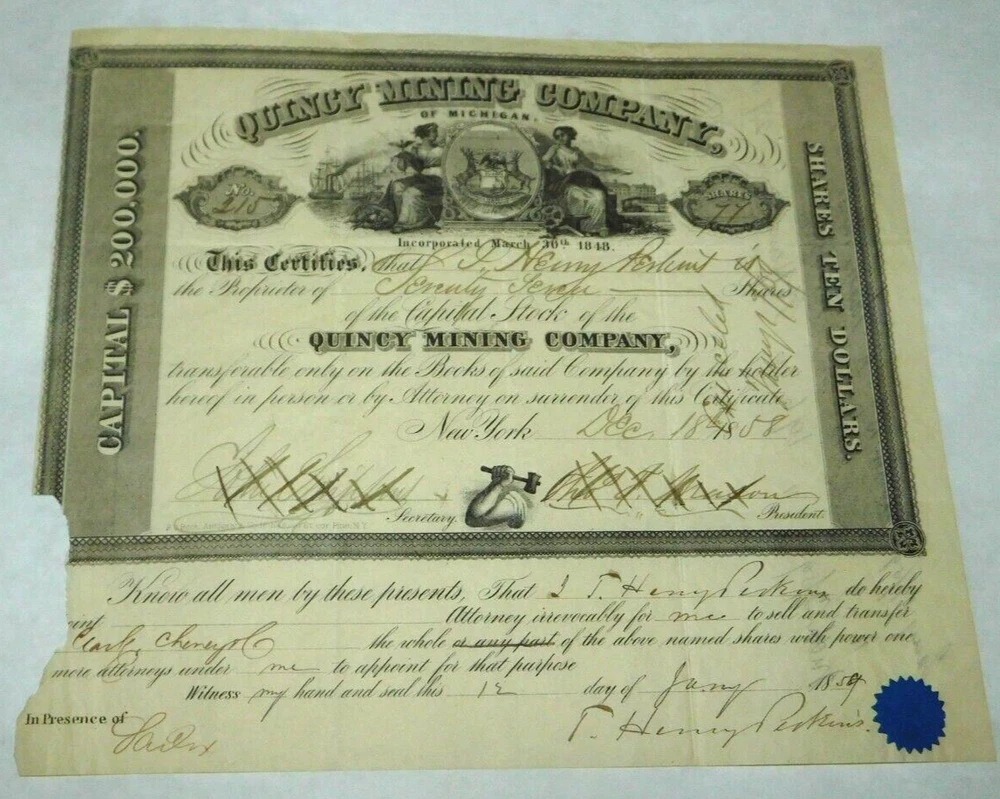 QUINCY MINING COMPANY,
OF MICHIGAN.
CAPITAL $ 200.000.
SHARES TEN DOLLARS.
No. 215
SHARES 77
Incorporated March 30th 1848.
This Certifies, that T. Henry Perkins is
the Proprietor of Seventy Seven Shares
of the Capital Stock of the
QUINCY MINING COMPANY,
transferable only on the Books of said Company by the holder
hereof in person or by Attorney on surrender of this Certificate
New York Dec. 18th 1858
Cancelled
Secretary.
Thos. F. Mason
President.
Know all men by these presents, That I T. Henry Perkins do hereby
Attorney irrevocably for me to sell and transfer
the whole or any part of the above named shares with power one
more attorneys under me to appoint for that purpose
Witness my hand and seal this 12 day of Jany 1859
In Presence of
T. Henry Perkins.